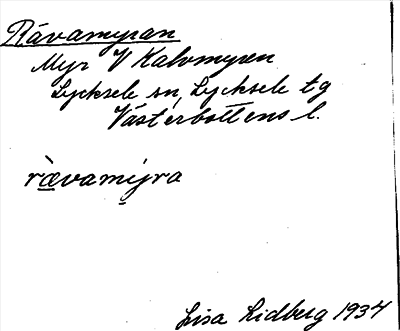 Rävamyran
Myr V Kalvmyren
Lycksele sn, Lycksele tg
Västerbottens l.
rævamyra
Lisa Lidberg 1934